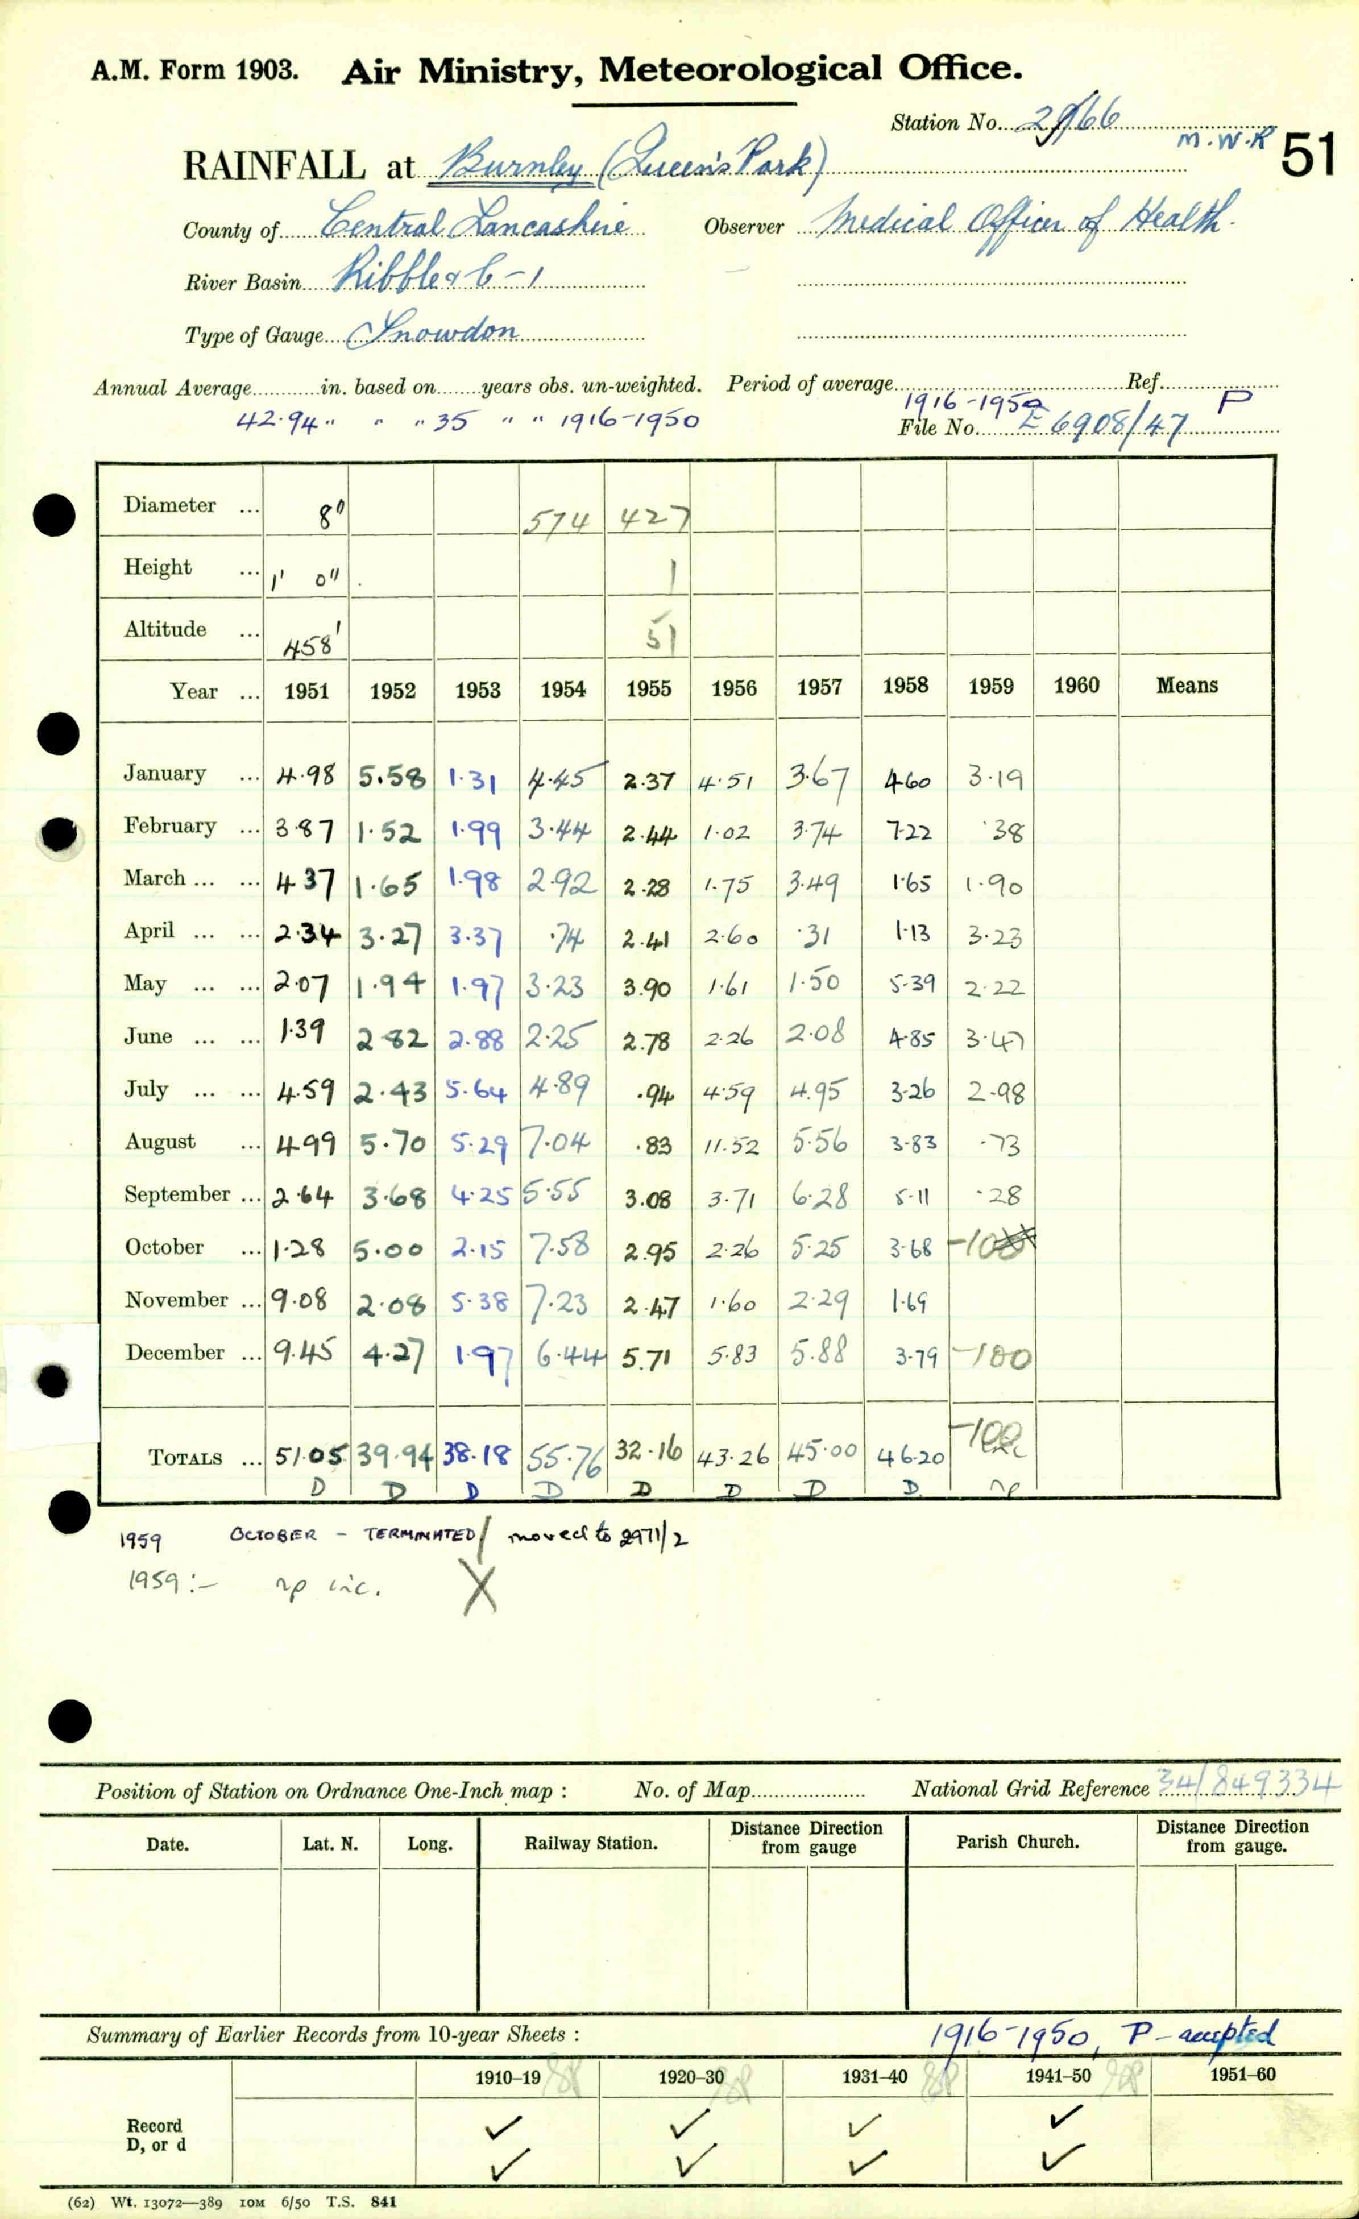 A.M. Form 1903. Air Ministry, Meteorological Office.
Station No. 2966 M.W.R 51
RAINFALL at Burnley (Queen's Park)
County of Central Lancashire Observer Medical Officer of Health.
River Basin Ribble & C-1
Type of Gauge Snowdon
Annual Average in. based on years obs. un-weighted. Period of average 1916-1950 Ref. P
42.94 " " " 35 " " 1916-1950 File No. E 6908/47
Diameter ... 8" 574 427
Height ... 1' 0" 1
Altitude ... 458' 51
Year ... 1951 1952 1953 1954 1955 1956 1957 1958 1959 1960 Means
January ... 4.98 5.58 1.31 4.45 2.37 4.51 3.67 4.60 3.19
February ... 3.87 1.52 1.99 3.44 2.44 1.02 3.74 7.22 .38
March ... ... 4.37 1.65 1.98 2.92 2.28 1.75 3.49 1.65 1.90
April ... ... 2.34 3.27 3.37 .74 2.41 2.60 .31 1.13 3.23
May ... ... 2.07 1.94 1.97 3.23 3.90 1.61 1.50 5.39 2.22
June ... ... 1.39 2.82 2.88 2.25 2.78 2.26 2.08 4.85 3.47
July ... ... 4.59 2.43 5.64 4.89 .94 4.59 4.95 3.26 2.98
August ... 4.99 5.70 5.29 7.04 .83 11.52 5.56 3.83 .73
September ... 2.64 3.68 4.25 5.55 3.08 3.71 6.28 5.11 .28
October ... 1.28 5.00 2.15 7.58 2.95 2.26 5.25 3.68 -100
November ... 9.08 2.08 5.38 7.23 2.47 1.60 2.29 1.69
December ... 9.45 4.27 1.97 6.44 5.71 5.83 5.88 3.79 -100
TOTALS ... 51.05 39.94 38.18 55.76 32.16 43.26 45.00 46.20 -100
D D D D D D D D np
1959 OCTOBER - TERMINATED / moved to 2971/2
1959:- np inc. X
Position of Station on Ordnance One-Inch map : No. of Map National Grid Reference 34/849334
Date. Lat. N. Long. Railway Station. Distance Direction from gauge Parish Church. Distance Direction from gauge.
Summary of Earlier Records from 10-year Sheets : 1916-1950, P - accepted
1910-19 1920-30 1931-40 1941-50 1951-60
Record ✓ ✓ ✓ ✓
D, or d ✓ ✓ ✓ ✓
(62) Wt. 13072—389 10M 6/50 T.S. 841